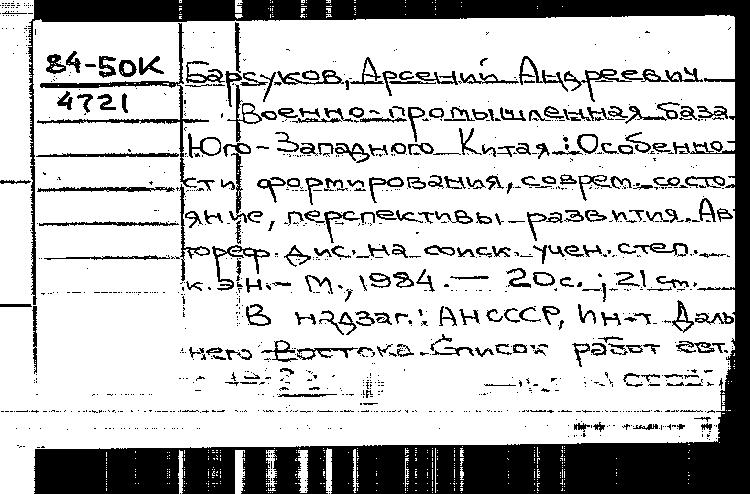 84-50К
4721
Барсуков, Арсений Андреевич
Военно-промышленная база
Юго-Западного Китая: Особенно-
сти формирования, соврем. состо-
яние, перспективы развития. Ав-
тореф. дис. на соиск. учен. степ.
к.э.н. - М., 1984. - 20 с.; 21 см.
В надзаг.: АН СССР, Ин-т Даль-
него Востока. Список работ авт.